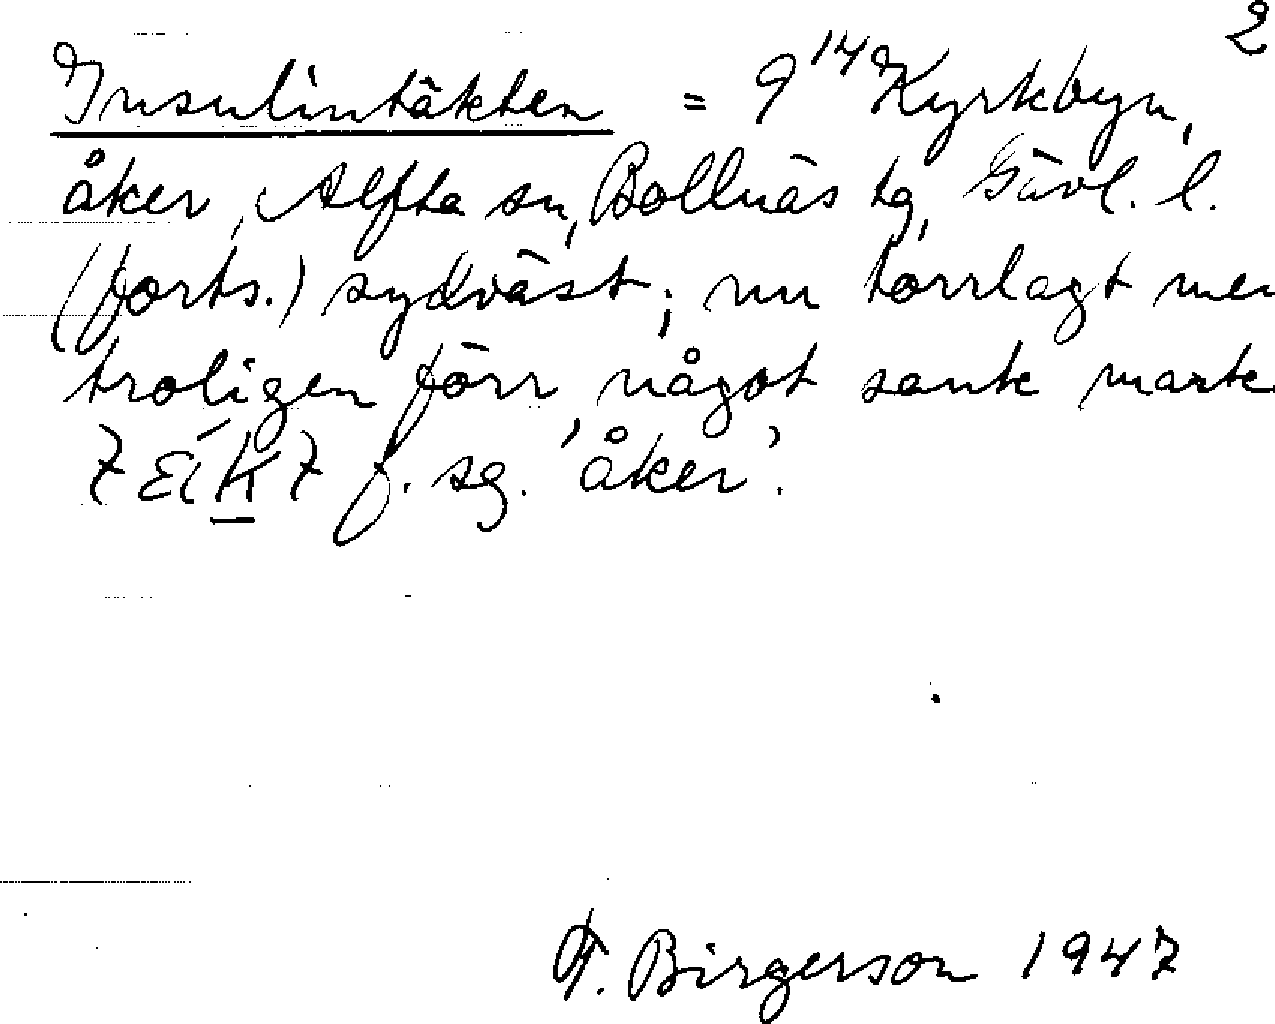 2
Insulintäkten = 9¹⁴ Kyrkbyn,
åker, Alfta sn, Bollnäs tg, Gävl. l.
(forts.) sydväst; nu torrlagt men
troligen förr något sank mark
f. sg. 'åker'.
T. Birgerson 1947